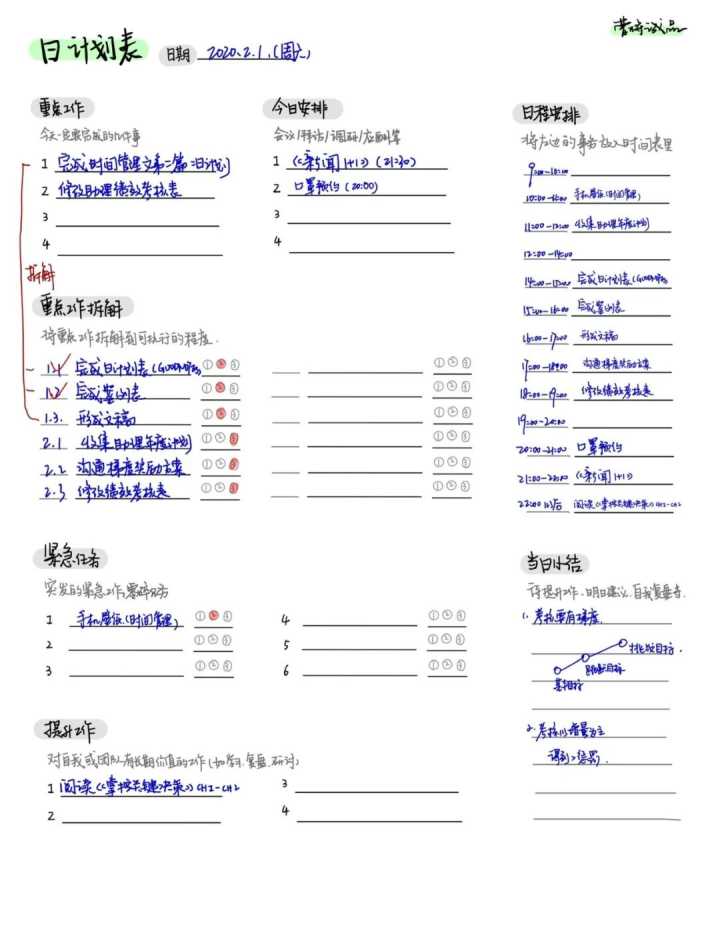 日计划表
日期 2020.2.1.(周六)
重点工作
今天一定要完成的几件事
1 完成时间管理文章二篇:日计划
2 修改助理绩效考核表
3
4
拆解
今日安排
会议/拜访/调研/应酬等
1 《新闻1+1》(21:30)
2 口罩预约(20:00)
3
4
重点工作拆解
将重点工作拆解到可执行的程度.
1.1 完成日计划表 ①②③
1.2 完成案例表 ①②③
1.3. 形成文稿 ①②③
2.1 收集助理年度计划 ①②③
2.2 沟通梯度奖励方案 ①②③
2.3 修改绩效考核表 ①②③
①②③
①②③
①②③
①②③
①②③
①②③
紧急任务
突发的紧急工作,零碎任务
1 手机屏保(时间管理) ①②③
2 ①②③
3 ①②③
4 ①②③
5 ①②③
6 ①②③
提升工作
对自我或团队有长期价值的工作(如学习.复盘.研讨)
1 阅读《掌控关键决策》CH1-CH2
2
3
4
日程安排
将左边的事务放入时间表里
9:00-10:00
10:00-11:00 手机屏保(时间管理)
11:00-12:00 收集助理年度计划
12:00-14:00
14:00-15:00 完成日计划表
15:00-16:00 完成案例表
16:00-17:00 形成文稿
17:00-18:00 沟通梯度奖励方案
18:00-19:00 修改绩效考核表
19:00-20:00
20:00-21:00 口罩预约
21:00-22:00 《新闻1+1》
22:00以后 阅读《掌控关键决策》CH1-CH2
当日小结
待提升工作.明日建议.自我复盘等.
1. 考核要有梯度.
挑战目标.
基础目标
2. 考核以增量为主